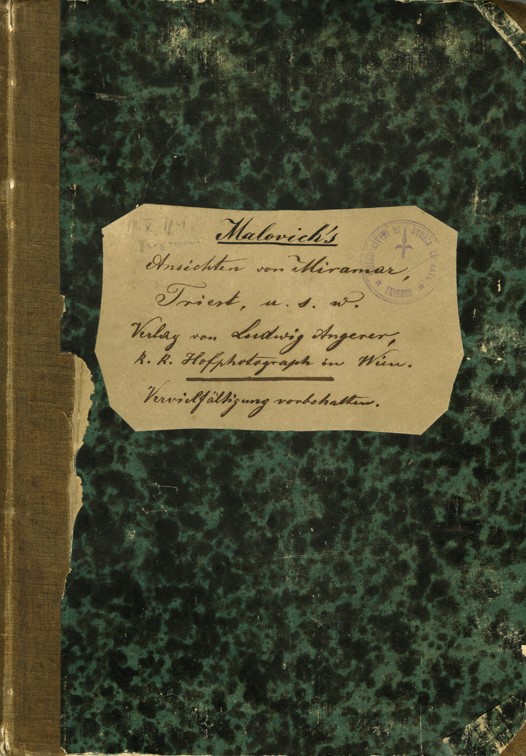 Malovich's
Ansichten von Miramar,
Triest, u. s. w.
Verlag von Ludwig Angerer,
k. k. Hofphotograph in Wien.
Vervielfältigung vorbehalten.
CIVICO MUSEO DI STORIA
TRIESTE